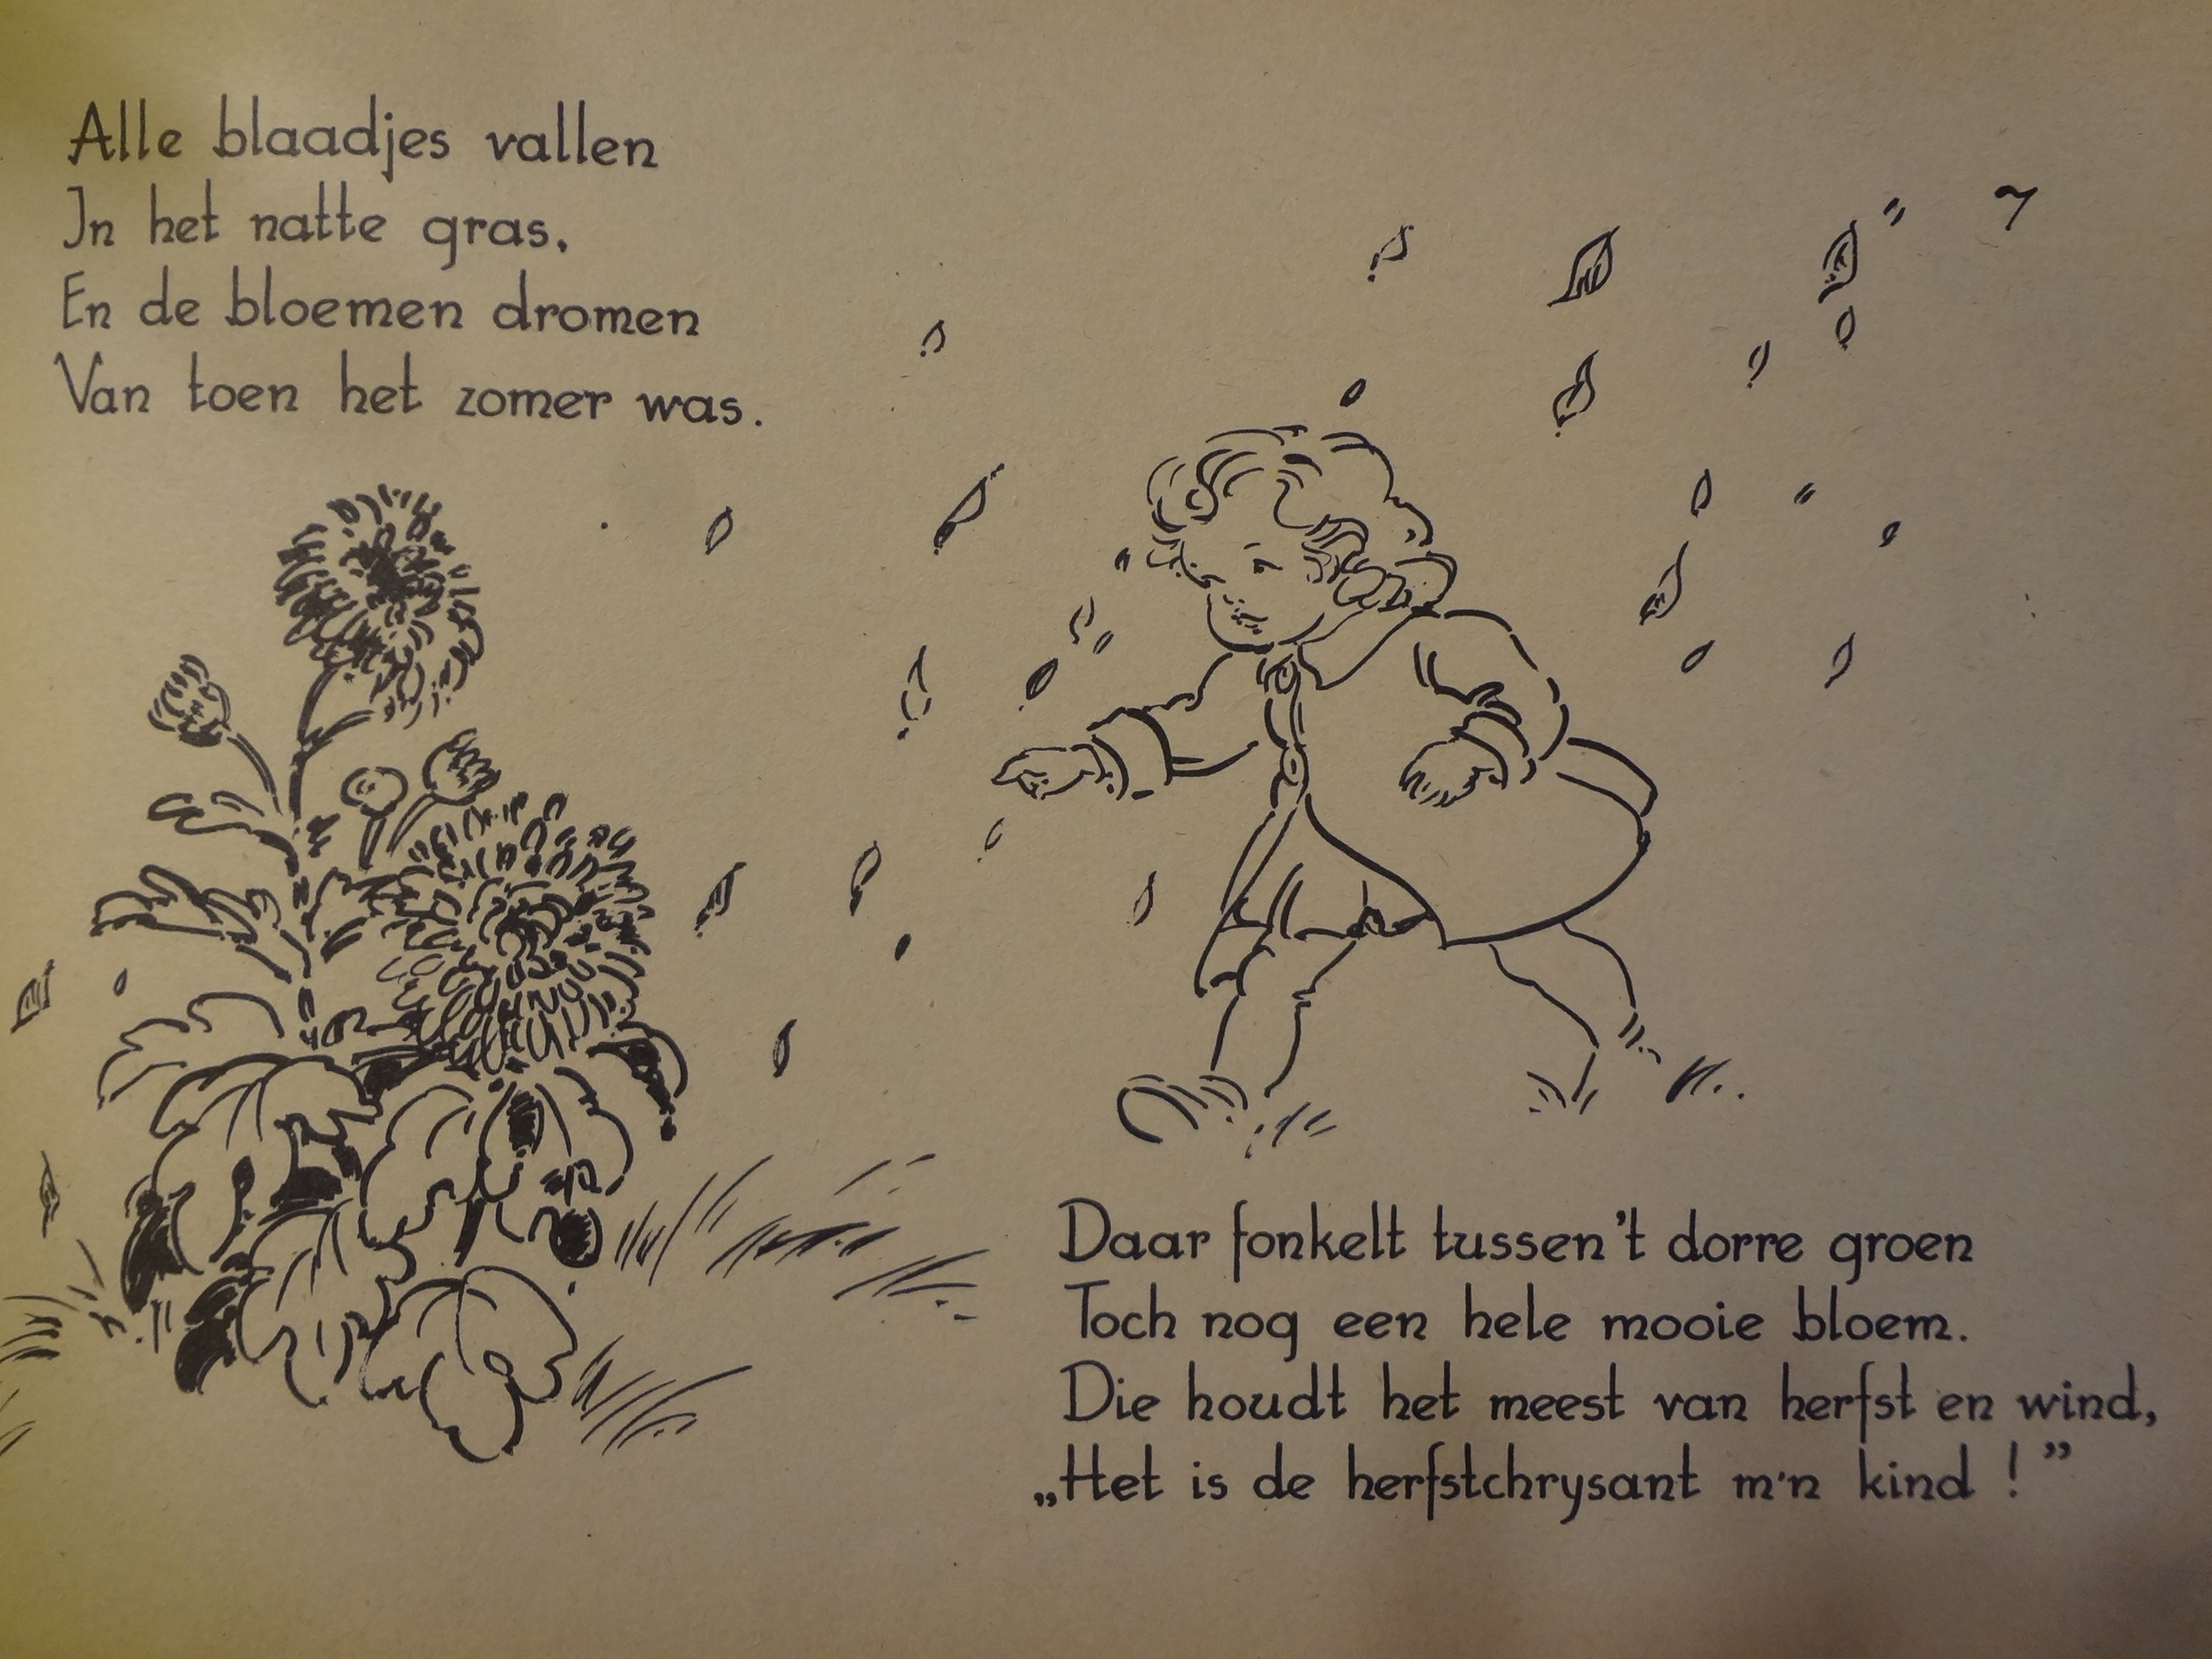 Alle blaadjes vallen
In het natte gras,
En de bloemen dromen
Van toen het zomer was.
Daar fonkelt tussen 't dorre groen
Toch nog een hele mooie bloem.
Die houdt het meest van herfst en wind,
„Het is de herfstchrysant m'n kind !”